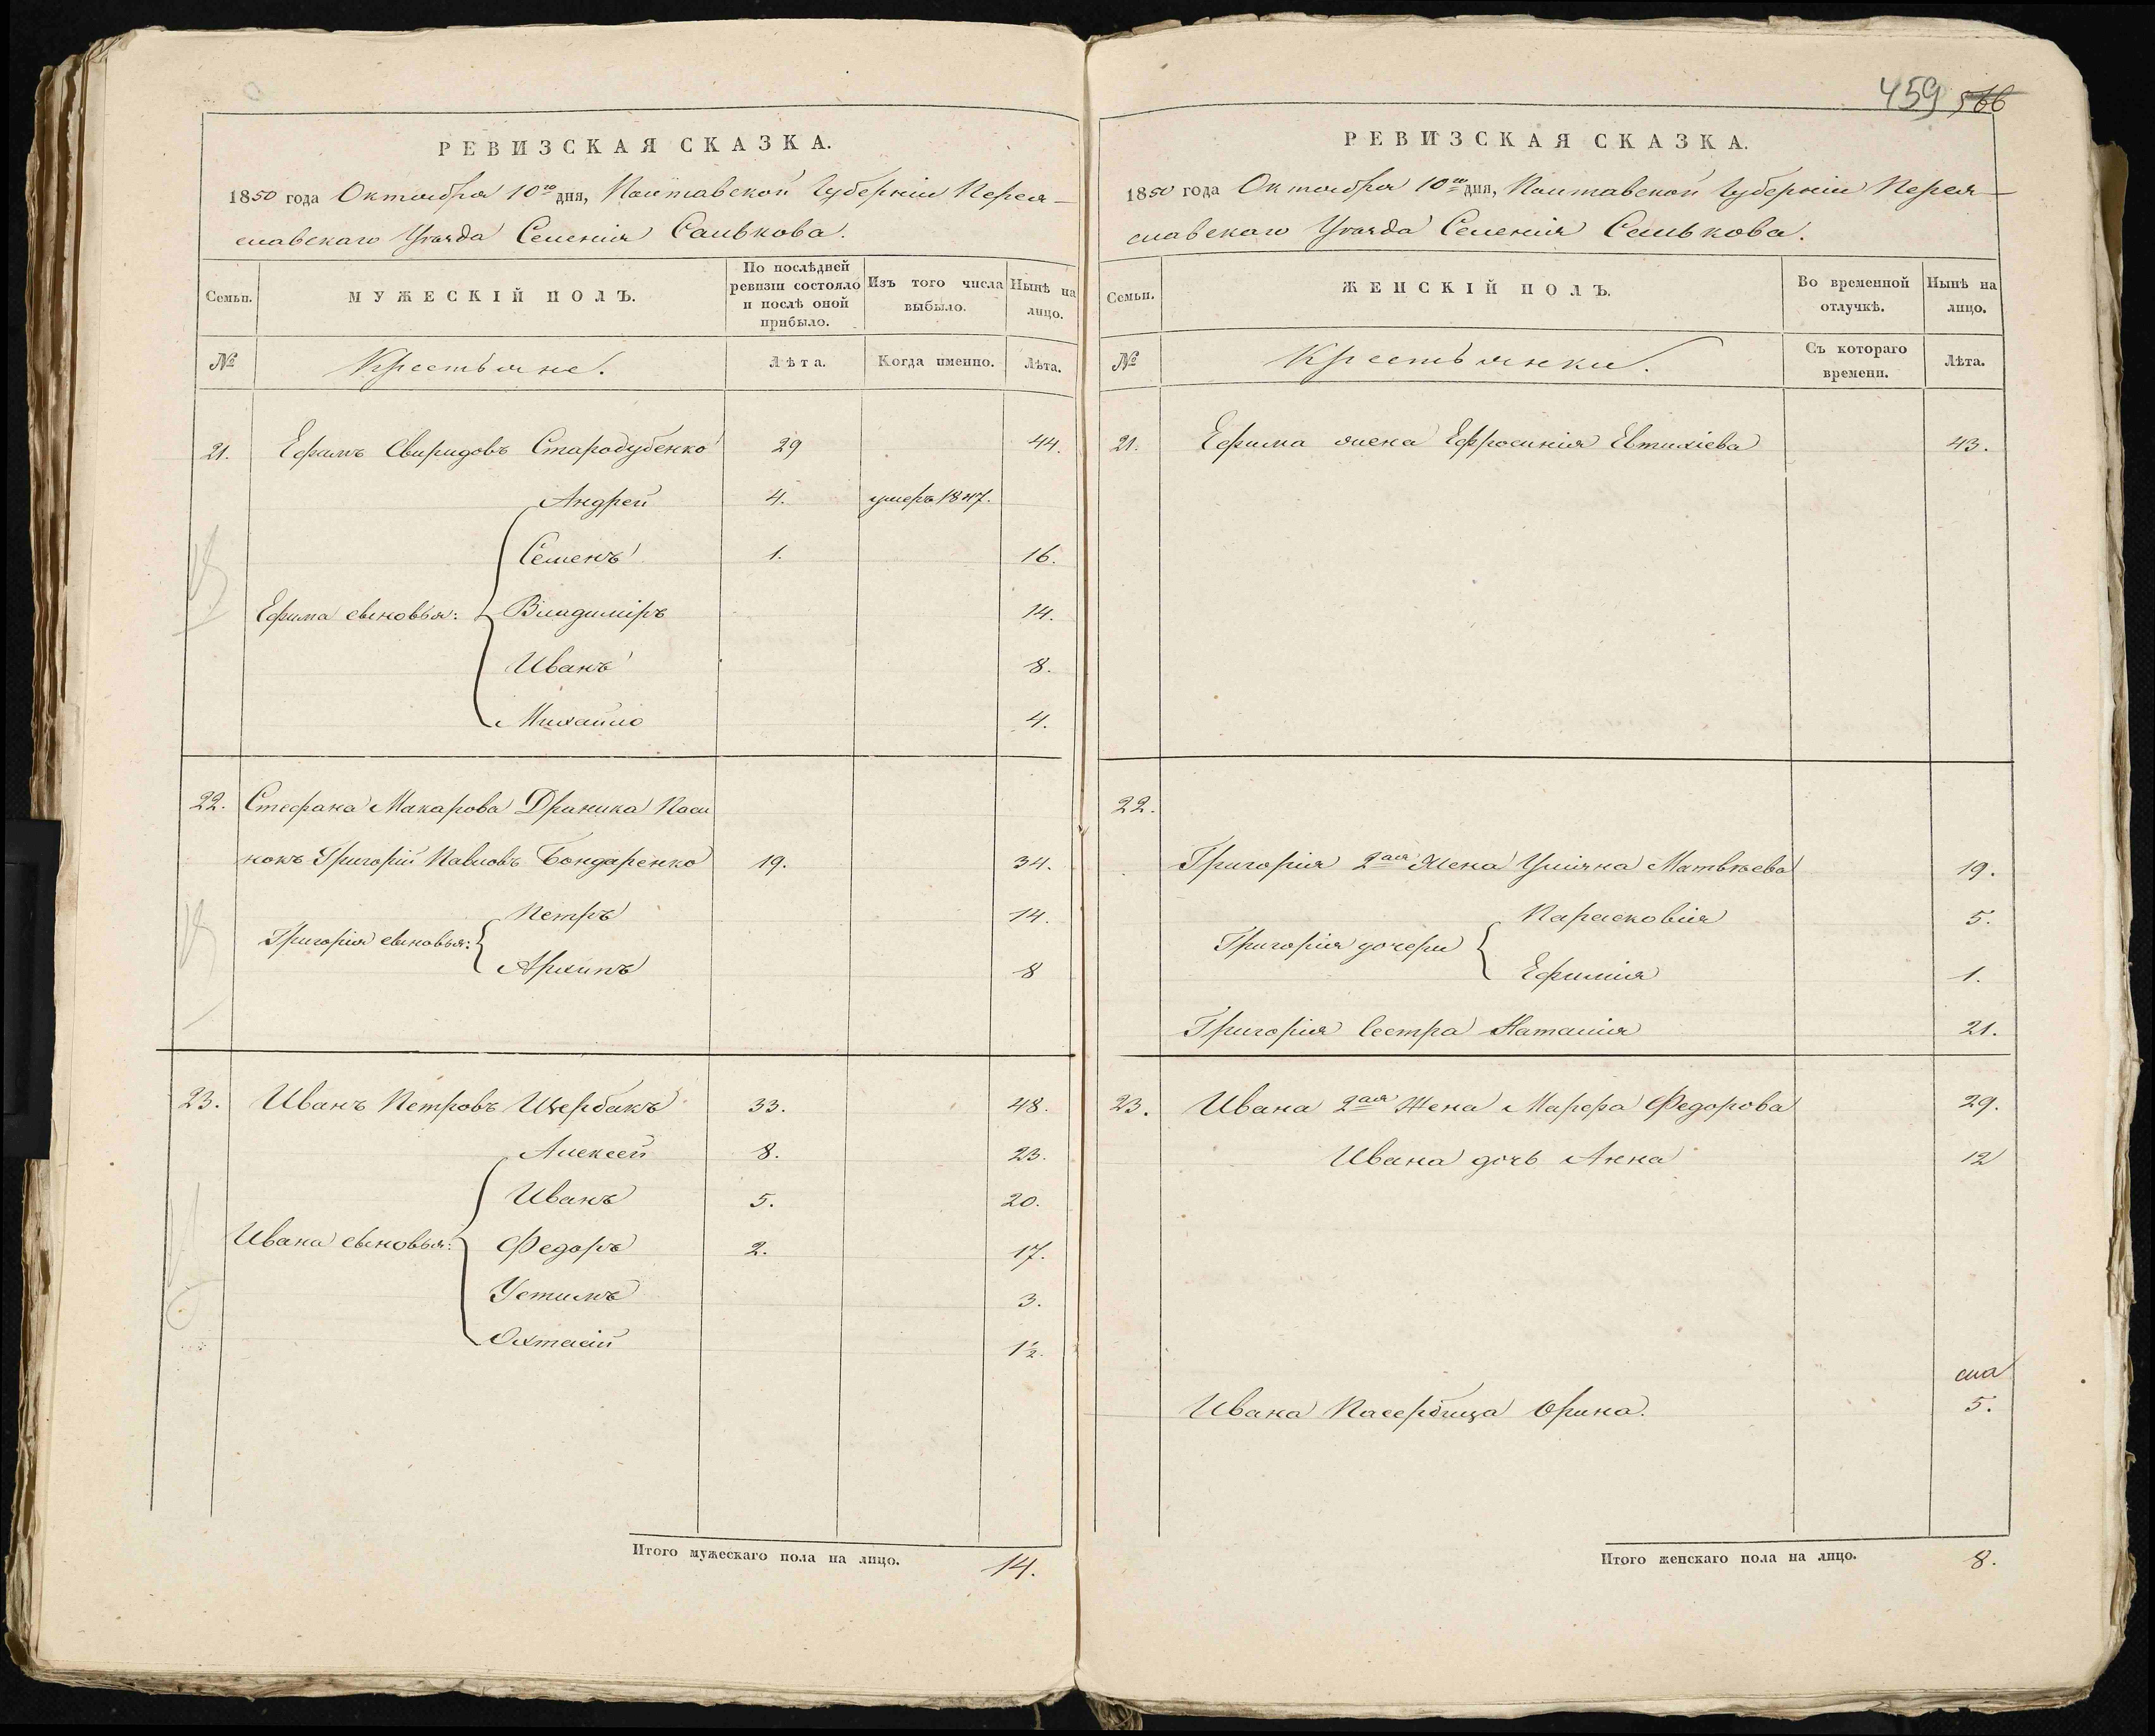 РЕВИЗСКАЯ СКАЗКА.
1850 года Октября 10го дня, Полтавской Губерніи Перея-
славскаго Уѣзда Селенія Салькова.
Семьи.
МУЖЕСКІЙ ПОЛЪ.
По послѣдней ревизіи состояло и послѣ оной прибыло.
Изъ того числа выбыло.
Нынѣ на лицо.
№
Крестьяне.
Лѣта.
Когда именно.
Лѣта.
21. Ефимъ Свиридовъ Стародубенко 29 44.
Андрей 4. умеръ 1847.
Семенъ 1. 16.
Ефима сыновья: Владиміръ 14.
Иванъ 8.
Михайло 4.
22. Стефана Макарова Драника Пасы
нокъ Григорій Павловъ Бондаренко 19. 34.
Петръ 14.
Григорія сыновья:
Архипъ 8
23. Иванъ Петровъ Щербакъ 33. 48.
Алексей 8. 23.
Иванъ 5. 20.
Ивана сыновья: Федоръ 2. 17.
Устимъ 3.
1½.
Итого мужескаго пола на лицо. 14.
459 566
РЕВИЗСКАЯ СКАЗКА.
1850 года Октября 10го дня, Полтавской Губерніи Перея-
славскаго Уѣзда Селенія Салькова.
Семьи.
ЖЕНСКІЙ ПОЛЪ.
Во временной отлучкѣ.
Нынѣ на лицо.
№
Крестьянки.
Съ котораго времени.
Лѣта.
21. Ефима жена Ефросинія Евтихіева 43.
22.
Григорія 2ая Жена Уліяна Матвѣева 19.
Парасковія 5.
Григорія дочери
Ефимія 1.
Григорія Сестра Наталія 21.
23. Ивана 2ая Жена Марфа Федорова 29.
Ивана дочь Анна 12
Ивана Пасербица Орина. 5.
Итого женскаго пола на лицо. 8.